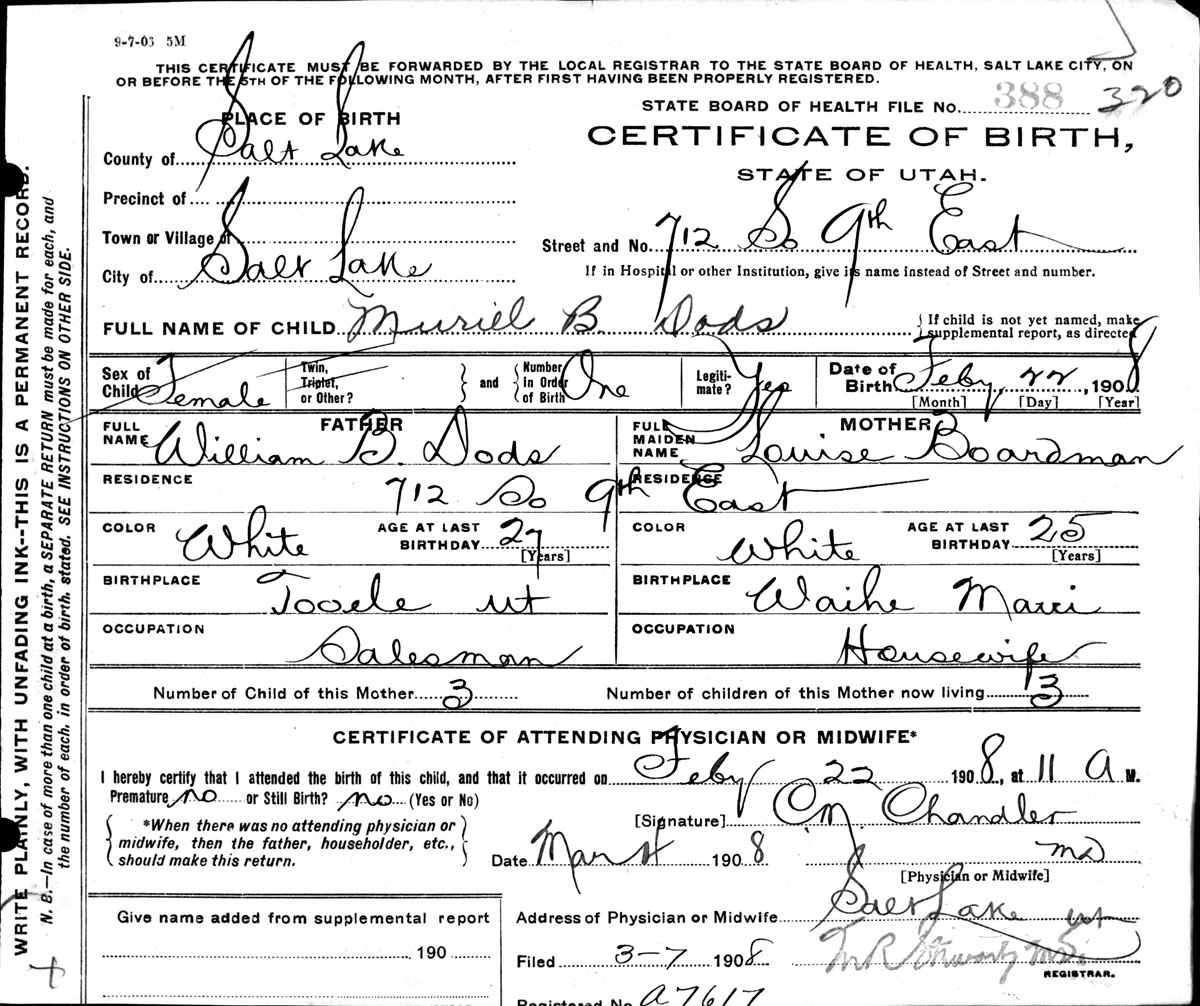 9-7-03 5M
THIS CERTIFICATE MUST BE FORWARDED BY THE LOCAL REGISTRAR TO THE STATE BOARD OF HEALTH, SALT LAKE CITY, ON
OR BEFORE THE 5TH OF THE FOLLOWING MONTH, AFTER FIRST HAVING BEEN PROPERLY REGISTERED.
STATE BOARD OF HEALTH FILE No. 388 320
PLACE OF BIRTH
CERTIFICATE OF BIRTH,
County of Salt Lake
STATE OF UTAH.
Precinct of
Town or Village of
Street and No. 712 So 9th East
City of Salt Lake
If in Hospital or other Institution, give its name instead of Street and number.
FULL NAME OF CHILD Muriel B. Dods
{ If child is not yet named, make
supplemental report, as directed
Sex of Child Female
Twin, Triplet, or Other?
and
Number In Order of Birth One
Legitimate? Yes
Date of Birth Feby 22, 1908
[Month] [Day] [Year]
FATHER
FULL NAME William B. Dods
MOTHER
FULL MAIDEN NAME Louise Boardman
RESIDENCE 712 So 9th East
RESIDENCE
COLOR White
AGE AT LAST BIRTHDAY 27 [Years]
COLOR White
AGE AT LAST BIRTHDAY 25 [Years]
BIRTHPLACE Tooele ut
BIRTHPLACE Waihe Maui
OCCUPATION Salesman
OCCUPATION Housewife
Number of Child of this Mother 3
Number of children of this Mother now living 3
CERTIFICATE OF ATTENDING PHYSICIAN OR MIDWIFE*
I hereby certify that I attended the birth of this child, and that it occurred on Feby 22 1908, at 11 A M.
Premature no or Still Birth? no (Yes or No)
*When there was no attending physician or
midwife, then the father, householder, etc.,
should make this return.
[Signature] CM Chandler
Date Mar 4 1908
MD
[Physician or Midwife]
Give name added from supplemental report
190
Address of Physician or Midwife Salt Lake ut
Filed 3-7 1908
REGISTRAR.
Registered No. A7617
WRITE PLAINLY, WITH UNFADING INK--THIS IS A PERMANENT RECORD.
N. B.—In case of more than one child at a birth, a SEPARATE RETURN must be made for each, and
the number of each, in order of birth, stated. SEE INSTRUCTIONS ON OTHER SIDE.